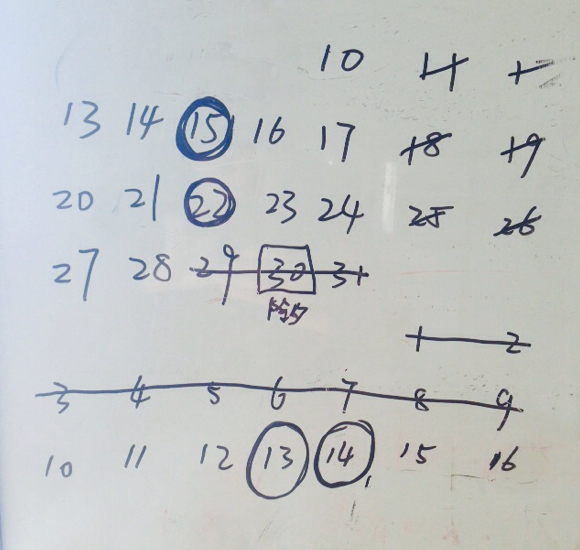 10 11
13 14 15 16 17 18 19
20 21 22 23 24 25 26
27 28 29 30 31
1 2
3 4 5 6 7 8 9
10 11 12 13 14 15 16